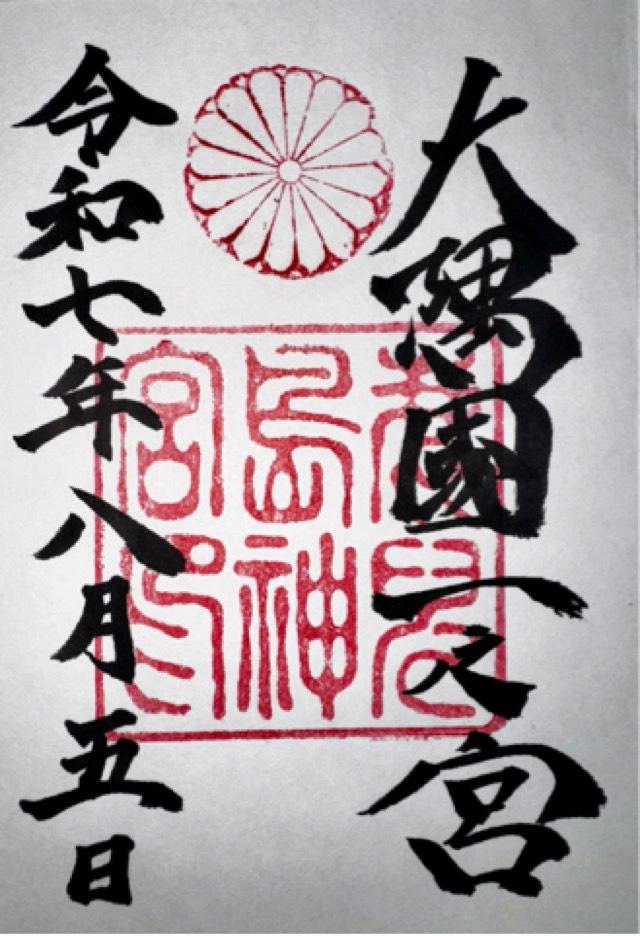 大隅國一之宮
鹿兒
島神
宮印
令和七年八月五日